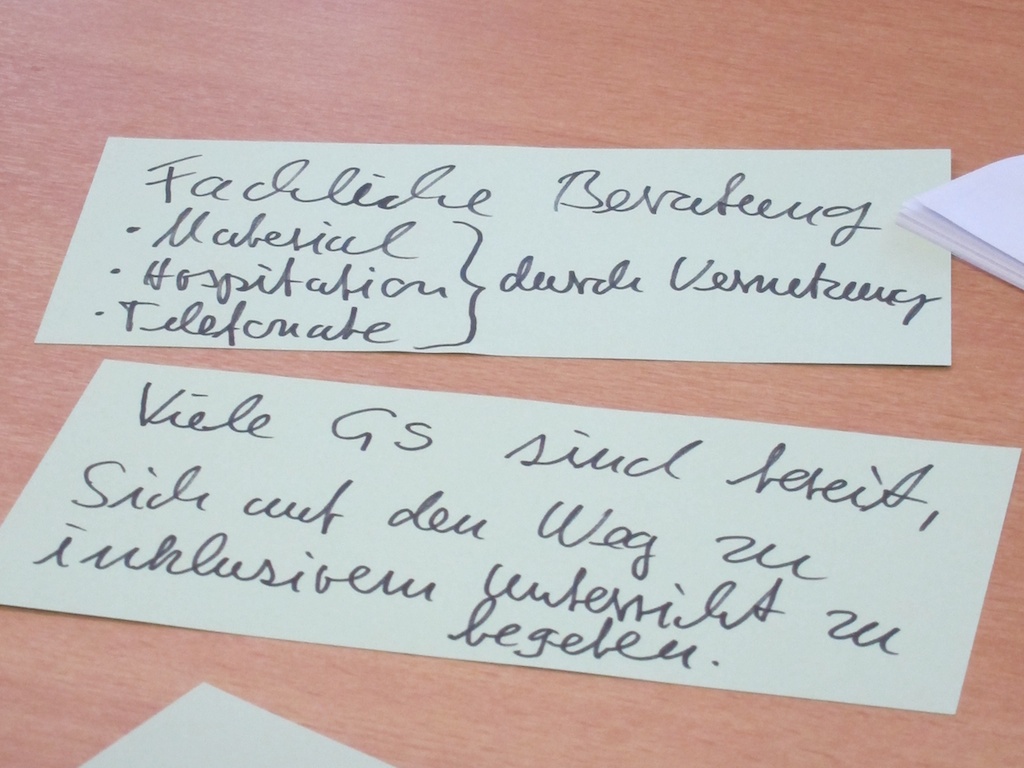 Fachliche Beratung
· Material
· Hospitation } durch Vernetzung
· Telefonate
Viele GS sind bereit,
Sich auf den Weg zu
inklusivem Unterricht zu
begeben.